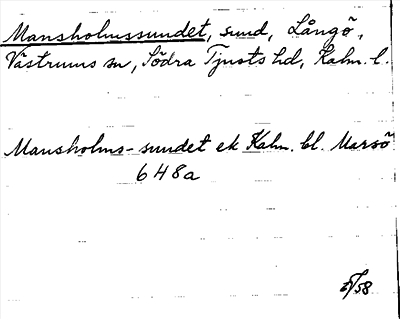 Mansholmssundet, sund, Långö,
Västrums sn, Södra Tjusts hd, Kalm. l.
Mansholms-sundet ek Kalm. bl. Marsö
648a
/58